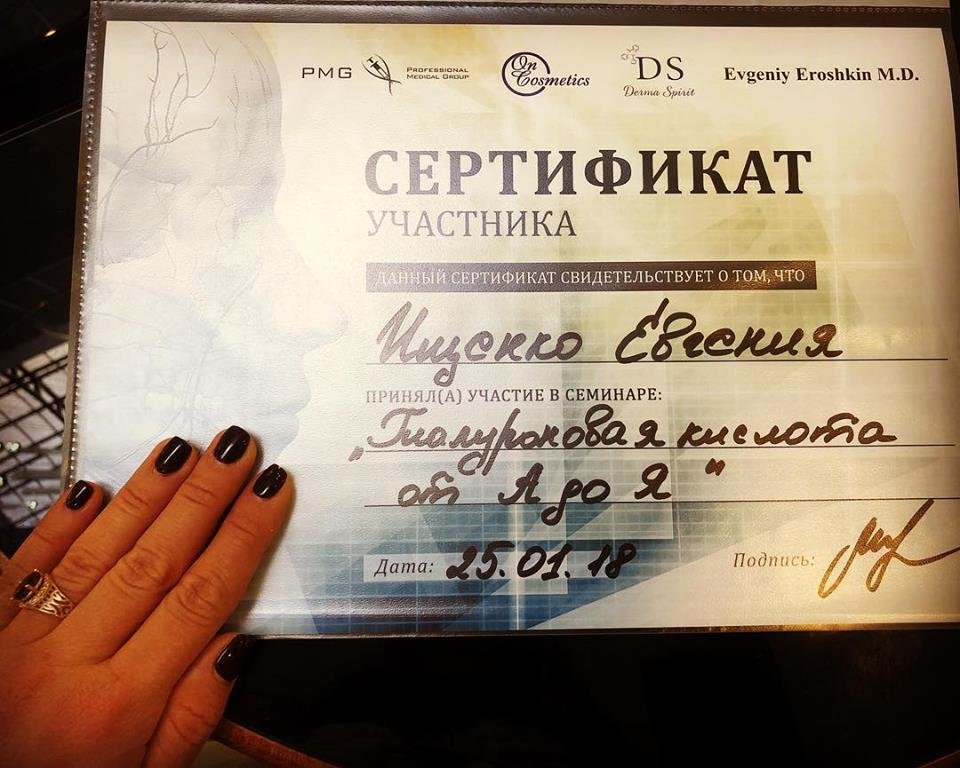 PMG PROFESSIONAL MEDICAL GROUP On Cosmetics DS Derma Spirit Evgeniy Eroshkin M.D.
СЕРТИФИКАТ
УЧАСТНИКА
ДАННЫЙ СЕРТИФИКАТ СВИДЕТЕЛЬСТВУЕТ О ТОМ, ЧТО
Ищенко Евгения
ПРИНЯЛ(А) УЧАСТИЕ В СЕМИНАРЕ:
„Гиалуроновая кислота
от А до Я"
Дата: 25.01.18 Подпись: